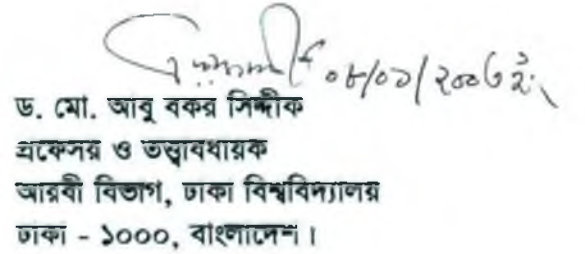 ০৮/০১/২০০৬ ইং
ড. মো. আবু বকর সিদ্দীক
প্রফেসর ও তত্ত্বাবধায়ক
আরবী বিভাগ, ঢাকা বিশ্ববিদ্যালয়
ঢাকা - ১০০০, বাংলাদেশ।